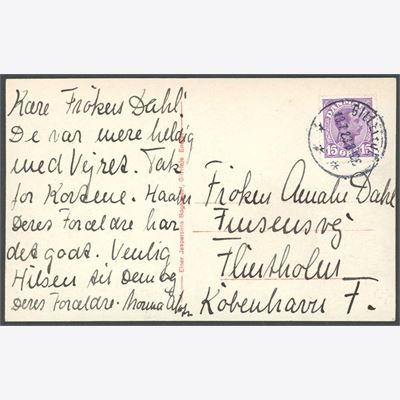 Kære Frøken Dahl!
De var mere heldig
med Vejret. Tak
for Kortene. Haaber
Deres Forældre har
det godt. Venlig
Hilsen til Dem og
Deres Forældre.
Frøken Amalie Dahl
Finsensvej
Flintholm
København F.
DANMARK
15 ØRE 15